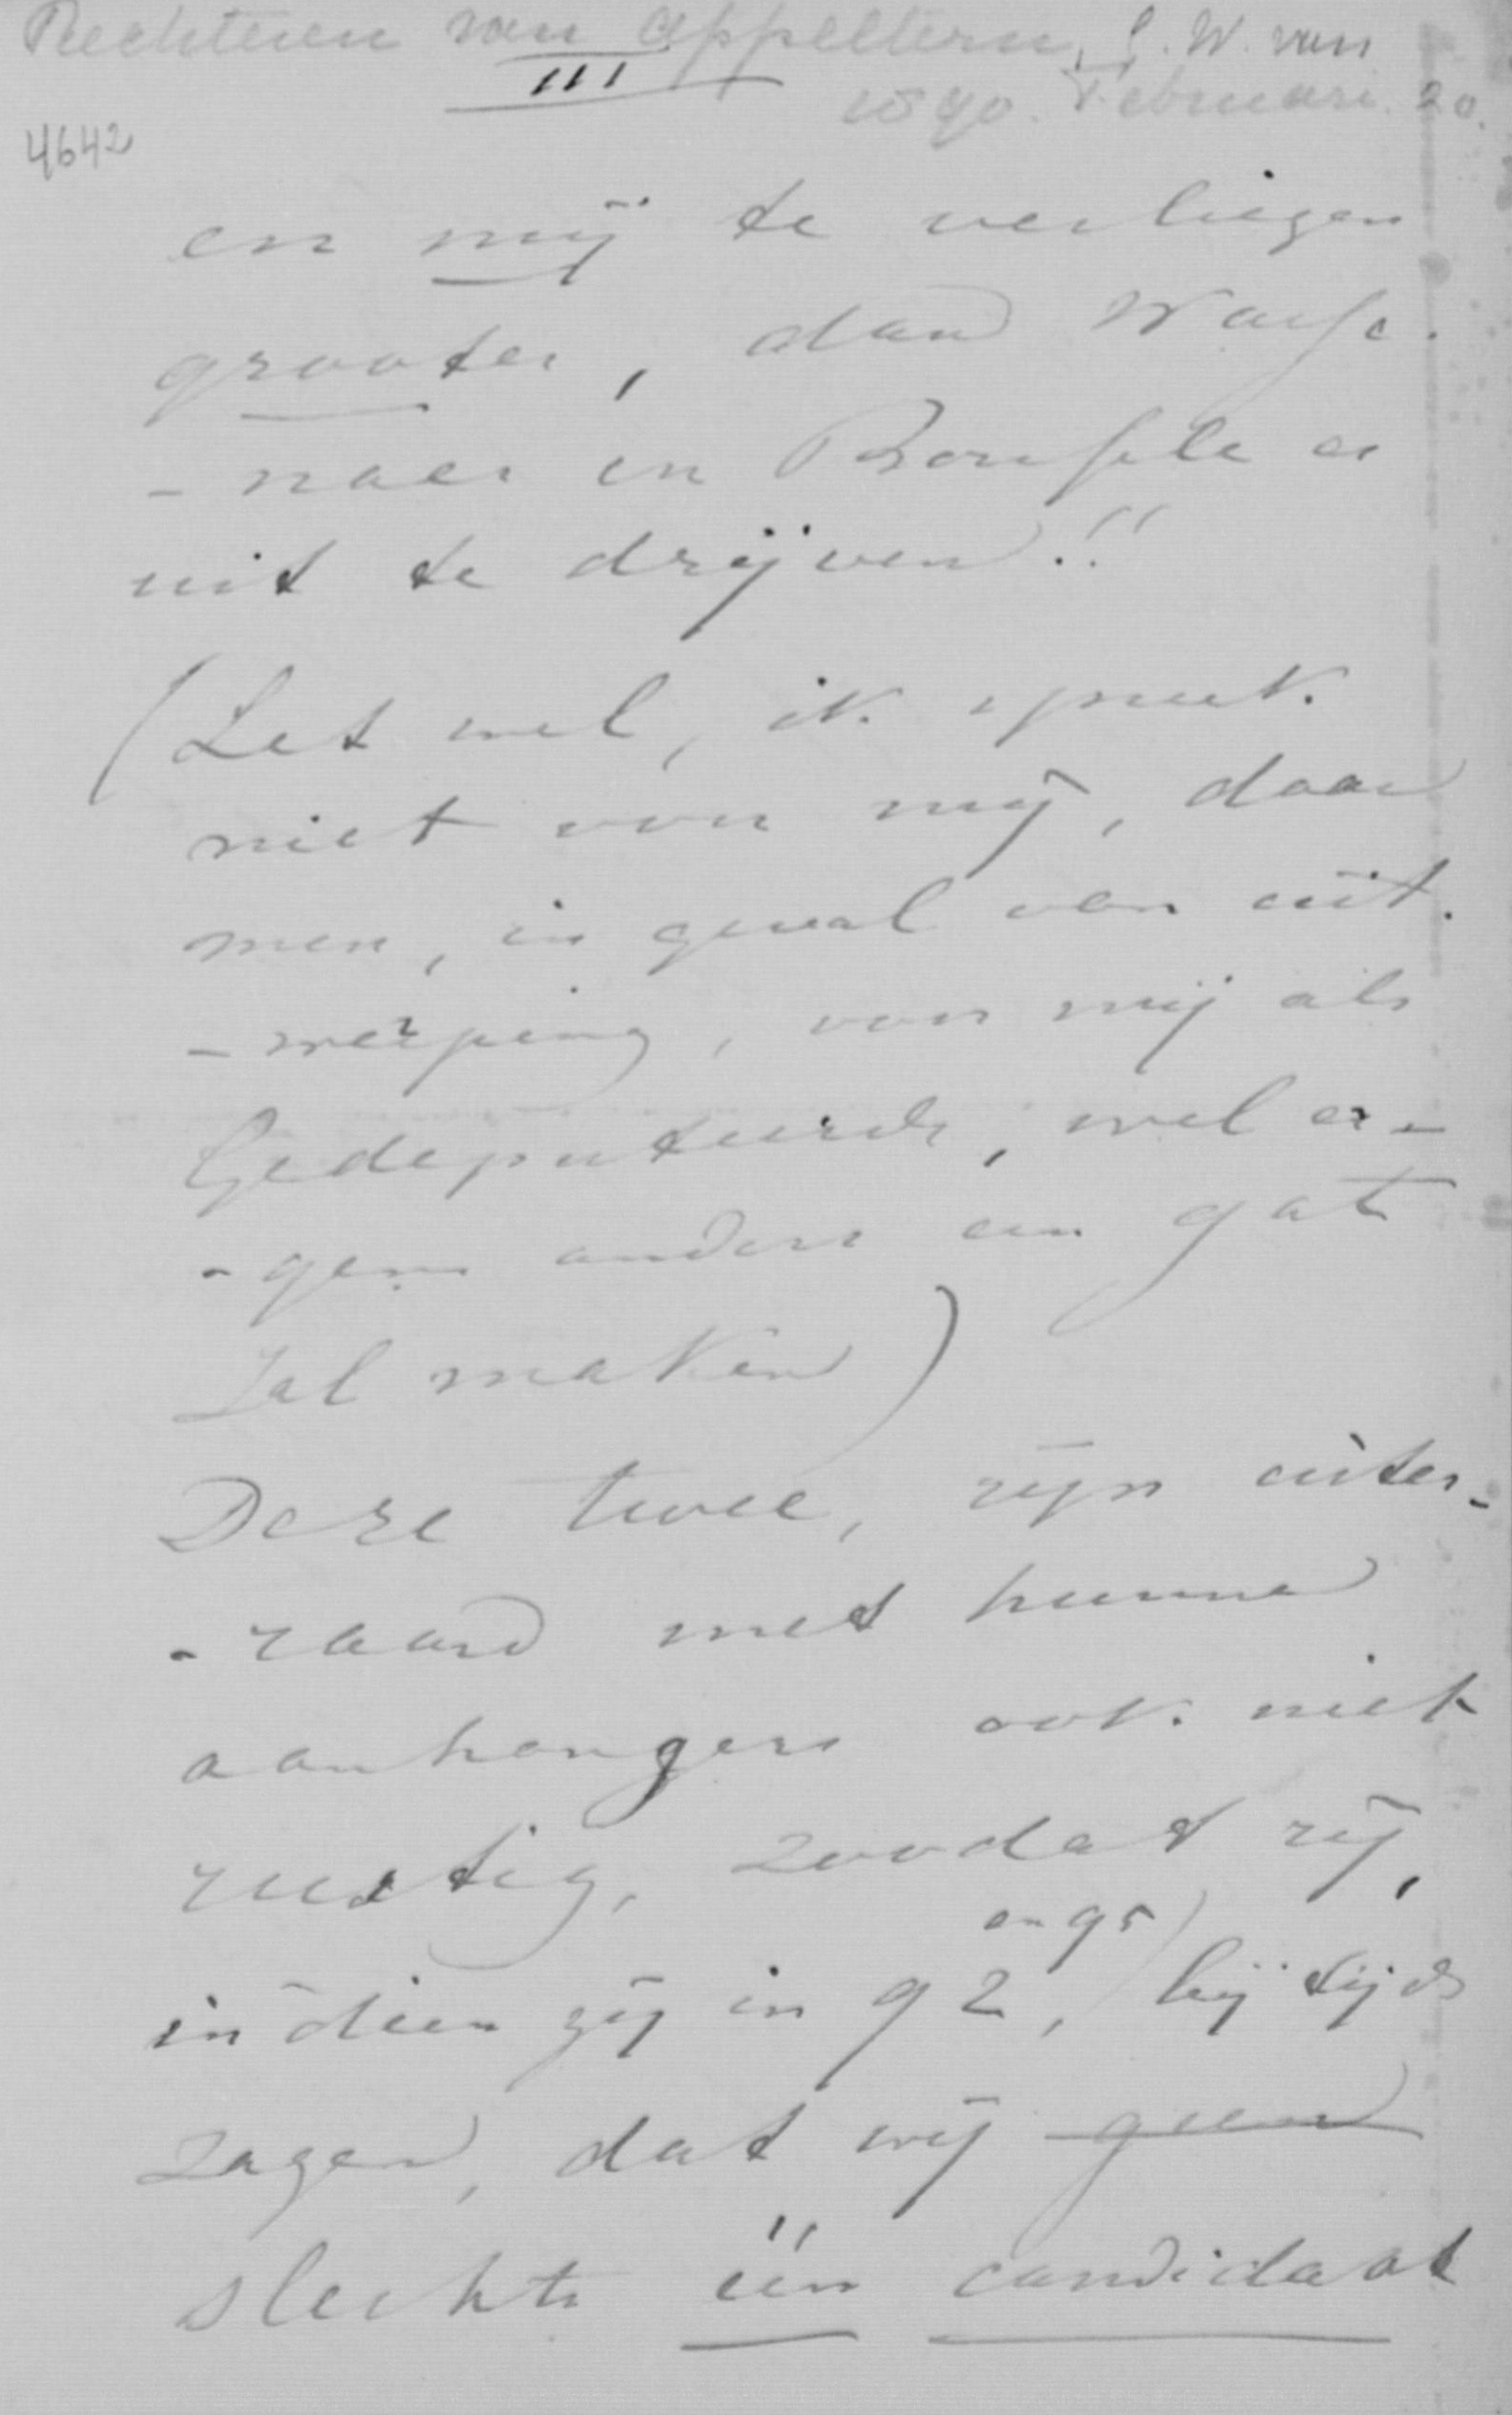 Rechteren van Appeltern, C. W. van
III
1890. Februari. 20.
4642
en mij te verliezen
grooter, dan
- naer en er
uit te drijven.!!
(Let wel, ik spreek
niet van mij, daar
men, in geval van uit.
- werping, van mij als
Gedeputeerde, wel er -
- gens anders een gat
zal maken)
Deze twee, zijn uiter -
- raard met hunne
aanhangers ook niet
rustig, zoodat zij,
en 95)
indien zij in 92, bij tijds
zagen, dat wij geen
slechts één candidaat